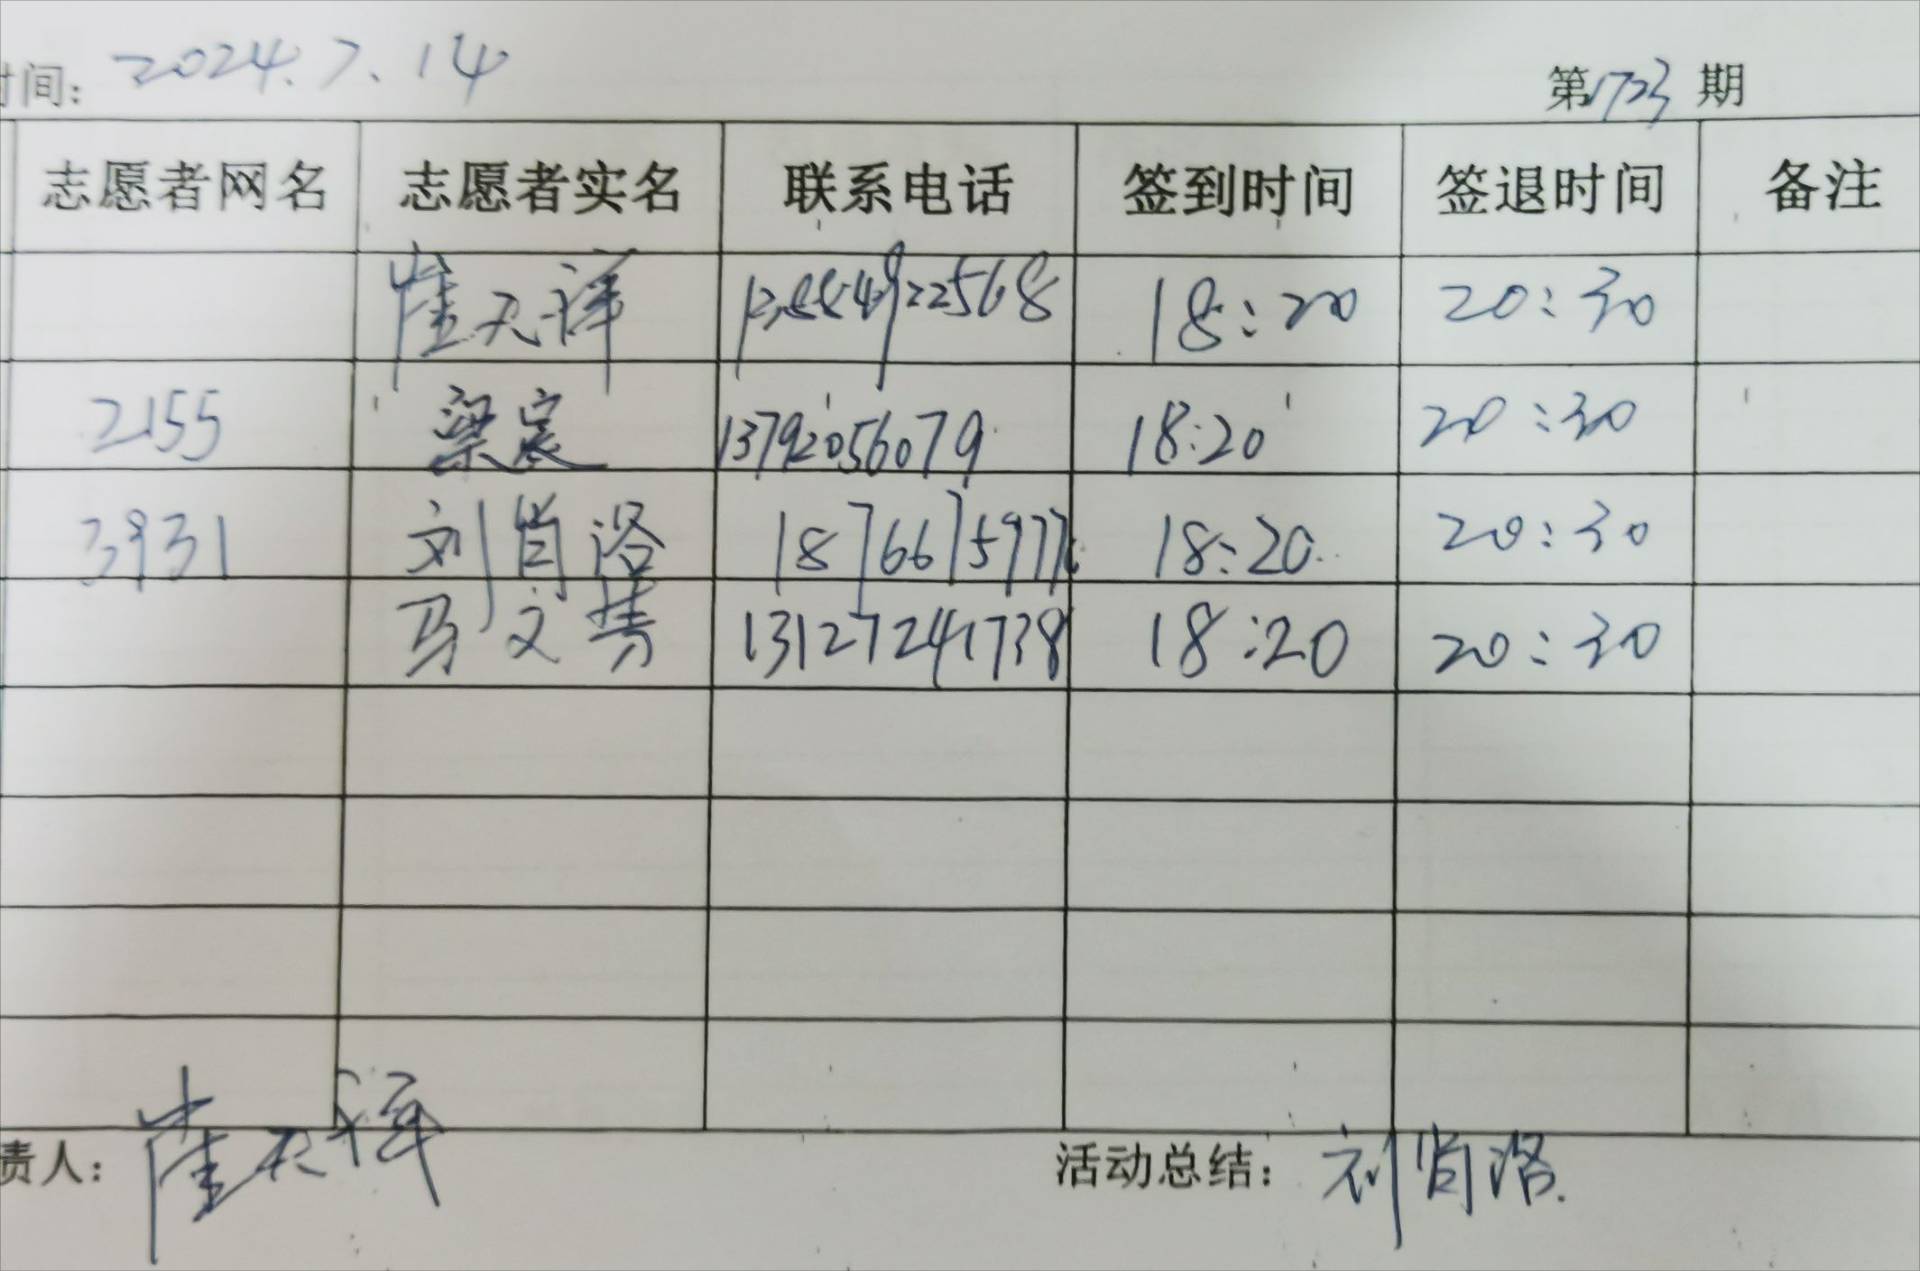 时间: 2024.7.14 第1723期
志愿者网名 志愿者实名 联系电话 签到时间 签退时间 备注
崔天祥 18:20 20:30
2155 梁宸 13792056079 18:20 20:30
3931 刘肖洛 18:20 20:30
马文菁 13127241738 18:20 20:30
责人: 崔天祥 活动总结: 刘肖洛